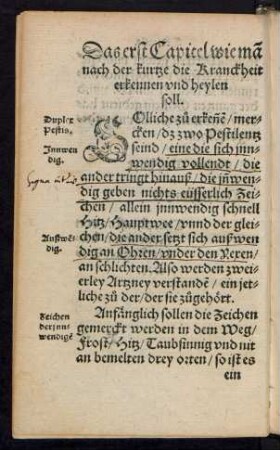 Das erst Capitel wie mā
nach der kurtze die Kranckheit
erkennen vnd heylen
soll.
Duplex
Pestis.
SOlliche zů erkeñē / mer-
cken / dz zwo Pestilentz
Innwen
dig.
seind / eine die sich inn-
wendig vollendt / die
ander tringt hinauß / die jñwen-
dig geben nichts eüsserlich Zei-
chen / allein jnnwendig schnell
Hitz / Hauptwee / vnnd der glei-
Außwē
dig.
chen / die ander setzt sich außwen
dig an Ohren / vnder den Vexen /
an schlichten. Also werden zwei-
erley Artzney verstandē / ein jet-
liche zů der / der sie zůgehört.
Zeichen
der jnn-
wendigē
Anfänglich sollen die Zeichen
gemerckt werden in dem Weg /
Frost / Hitz / Taubsinnig vnd nit
an bemelten drey orten / so ist es
ein